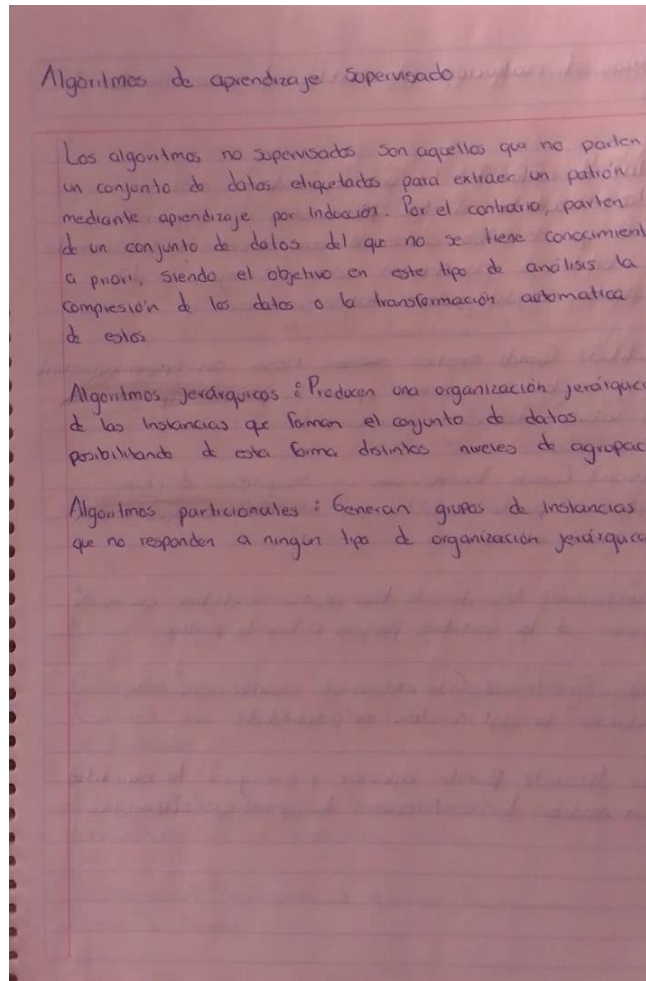 Algoritmos de aprendizaje Supervisado
Los algoritmos no supervisados son aquellos que no parten
un conjunto de datos etiquetados para extraer un patrón
mediante aprendizaje por Inducción. Por el contrario, parten
de un conjunto de datos del que no se tiene conocimient
a priori, siendo el objetivo en este tipo de análisis la
compresión de los datos o la transformación automatica
de estos
Algoritmos jerárquicos : Producen una organización jerárquic
de las Instancias que forman el conjunto de datos
posibilitando de esta forma distintos niveles de agrupac
Algoritmos particionales : Generan grupos de Instancias
que no responden a ningún tipo de organización jerárquica